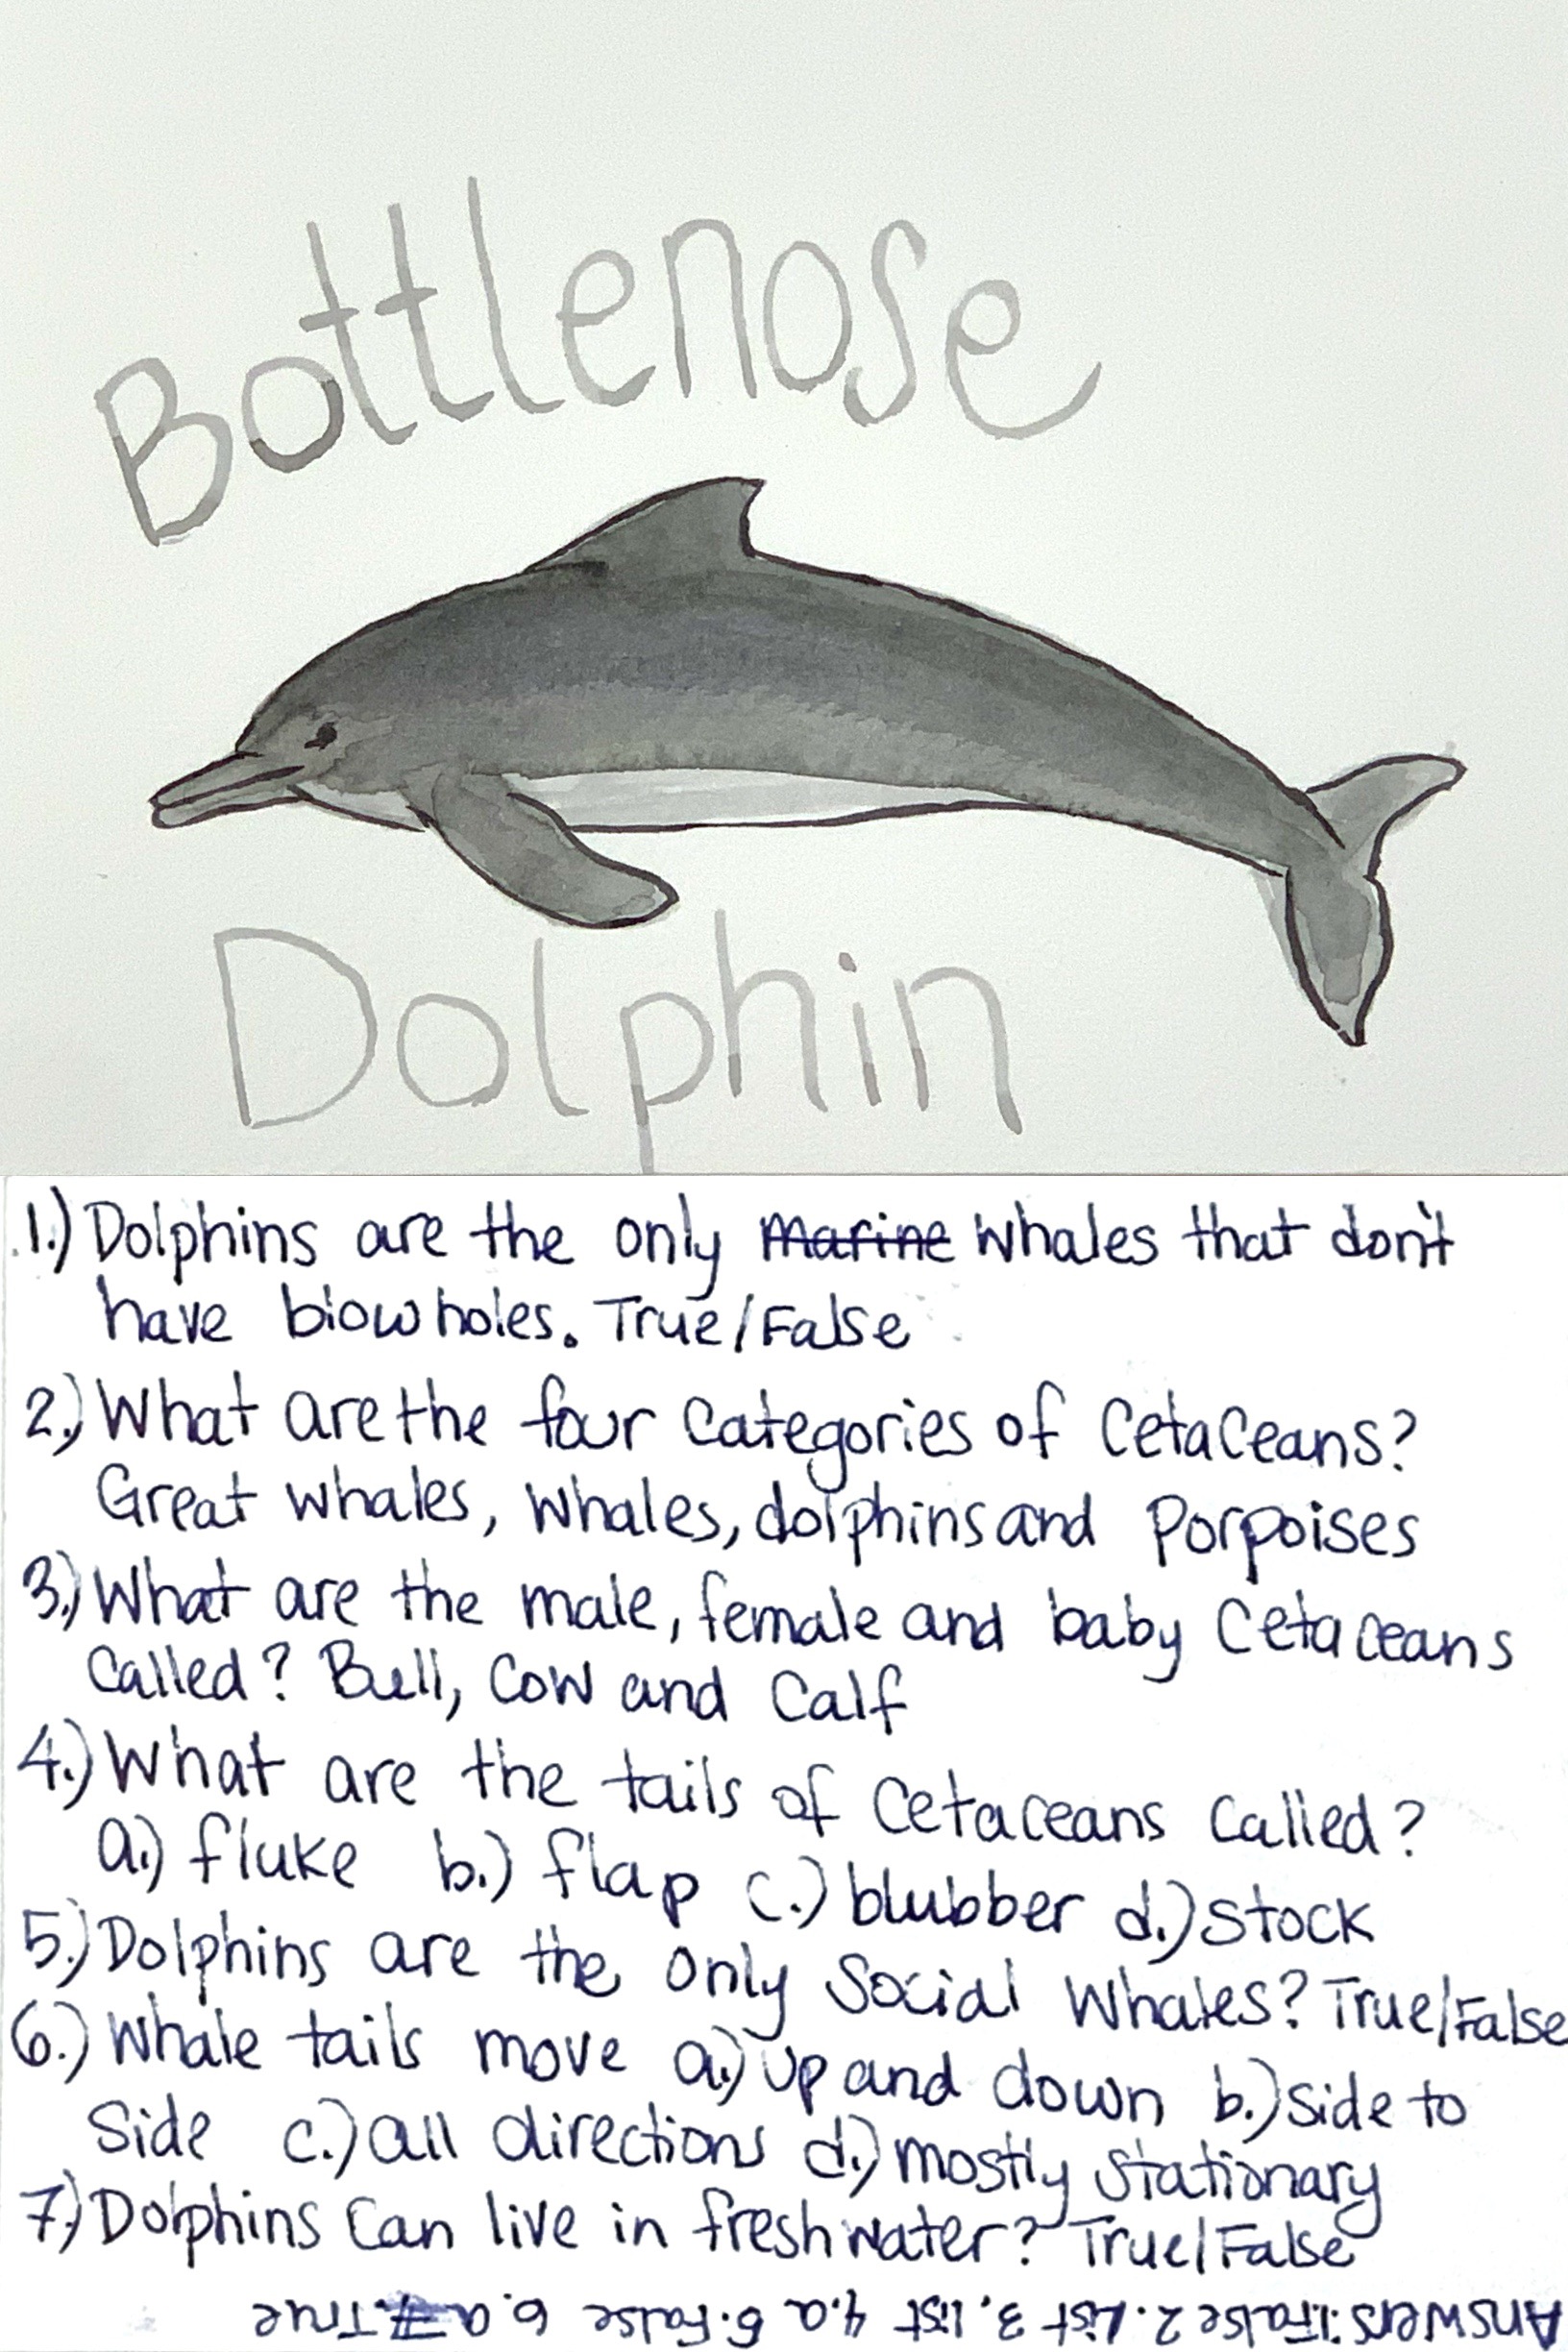 Bottlenose
Dolphin
1.) Dolphins are the only marine whales that don't
have blowholes. True/False
2.) What are the four categories of Cetaceans?
Great whales, whales, dolphins and Porpoises
3.) What are the male, female and baby Cetaceans
Called? Bull, Cow and Calf
4.) What are the tails of Cetaceans Called?
a.) fluke b.) flap c.) blubber d.) stock
5.) Dolphins are the only Social Whales? True/False
6.) Whale tails move a.) up and down b.) side to
Side c.) all directions d.) mostly stationary
7.) Dolphins Can live in freshwater? True/False
Answers: 1. False 2. List 3. list 4. a 5. False 6. a 7. True